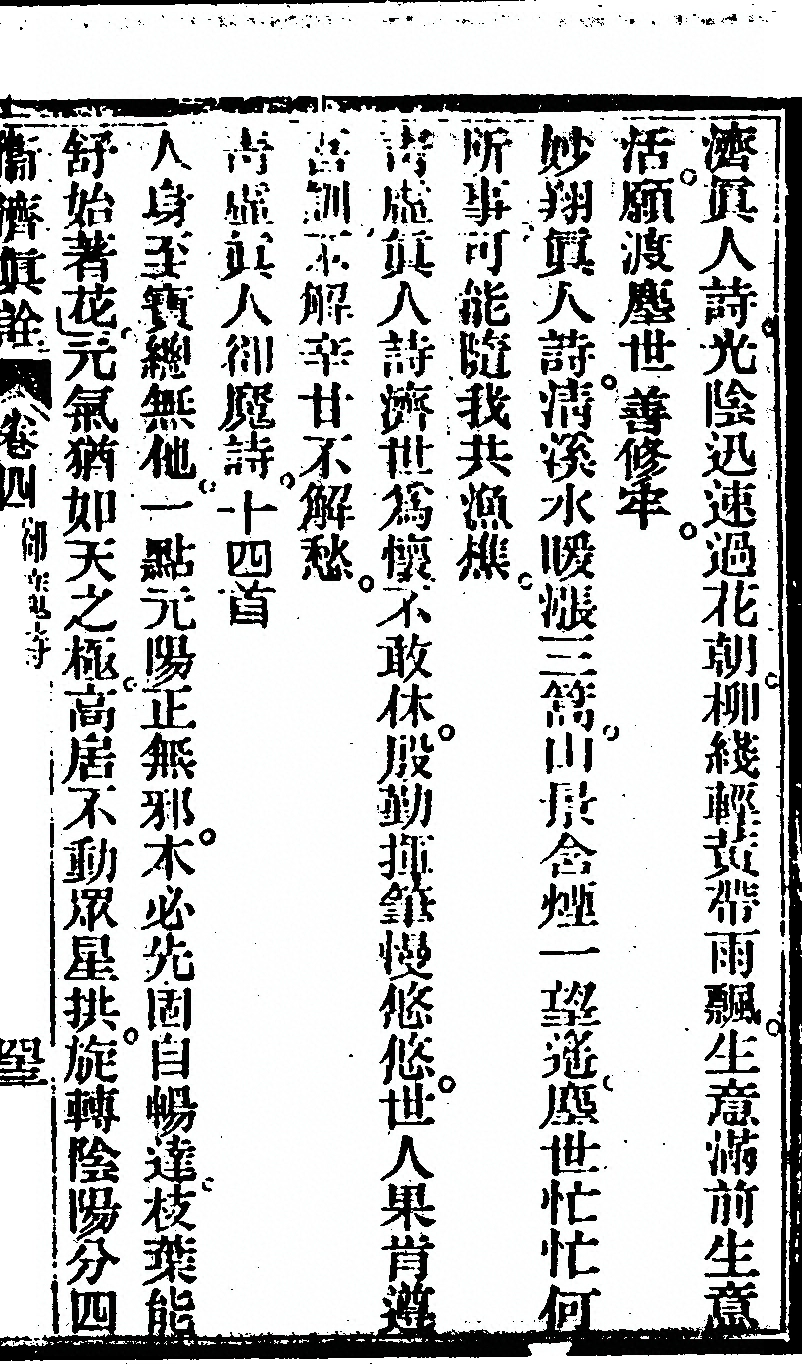 濟眞人詩光陰迅速過花朝柳綫輕黃帶雨飄生意滿前生意
活願渡塵世善修牢
妙翔眞人詩清溪水暖漲三篙山景含煙一望遙塵世忙忙何
所事可能隨我共漁樵
靑虛眞人詩濟世爲懷不敢休殷勤揮筆慢悠悠世人果肯遵
吾訓不解辛甘不解愁
靑虛眞人卻魔詩十四首
人身至寶總無他一點元陽正無邪木必先固自暢達枝葉能
舒始著花元氣猶如天之極高居不動眾星拱旋轉陰陽分四
濟眞詮 卷四 卻魔詩